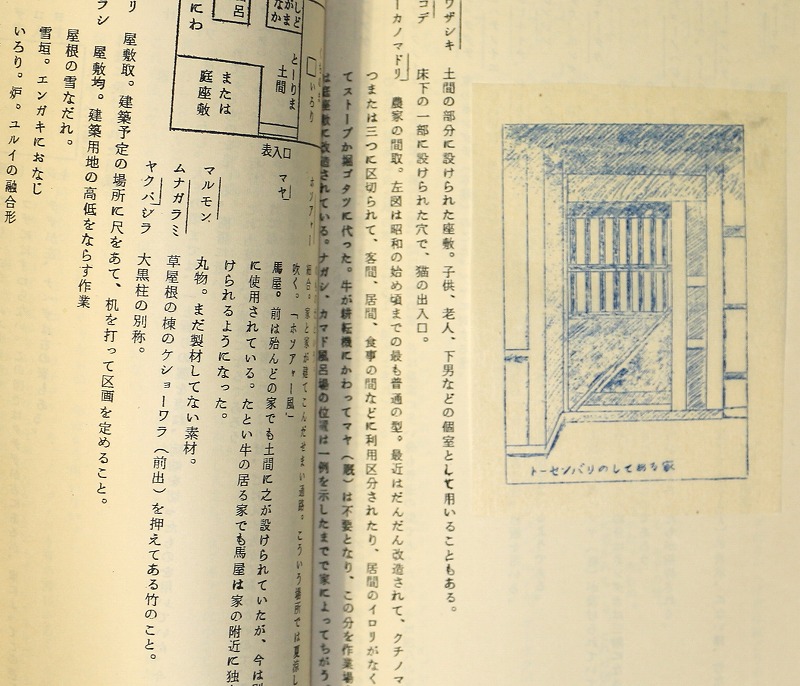 ワザシキ 土間の部分に設けられた座敷。子供、老人、下男などの個室として用いることもある。
コデ 床下の一部に設けられた穴で、猫の出入口。
ーカノマドリ 農家の間取。左図は昭和の始め頃までの最も普通の型。最近はだんだん改造されて、クチノマ
つまたは三つに区切られて、客間、居間、食事の間などに利用区分されたり、居間のイロリがなく
てストーブか堀ゴタツに代った。牛が耕耘機にかわってマヤ（厩）は不要となり、この分を作業場
は庭座敷に改造されている。ナガシ、カマド風呂場の位置は一例を示したまでで家によってちがう
トーセンバリのしてある家
ホソアャー
家と家が建てこんだせまい通路。こういう場所では夏涼し
吹く。「ホソアャー風」
マヤ 馬屋。前は殆んどの家でも土間に之が設けられていたが、今は
に使用されている。たとい牛の居る家でも馬屋は家の附近に独
けられるようになった。
マルモン 丸物。まだ製材してない素材。
ムナガラミ 草屋根の棟のケショーワラ（前出）を押えてある竹のこと。
ヤクバシラ 大黒柱の別称。
リ 屋敷取。建築予定の場所に尺をあて、杭を打って区画を定めること。
ラシ 屋敷均。建築用地の高低をならす作業
屋根の雪なだれ。
雪垣。エンガキにおなじ
いろり。炉。ユルイの融合形
いろり
とーりま
土間
しど
がま
なか
呂
にわ
または
庭座敷
表入口